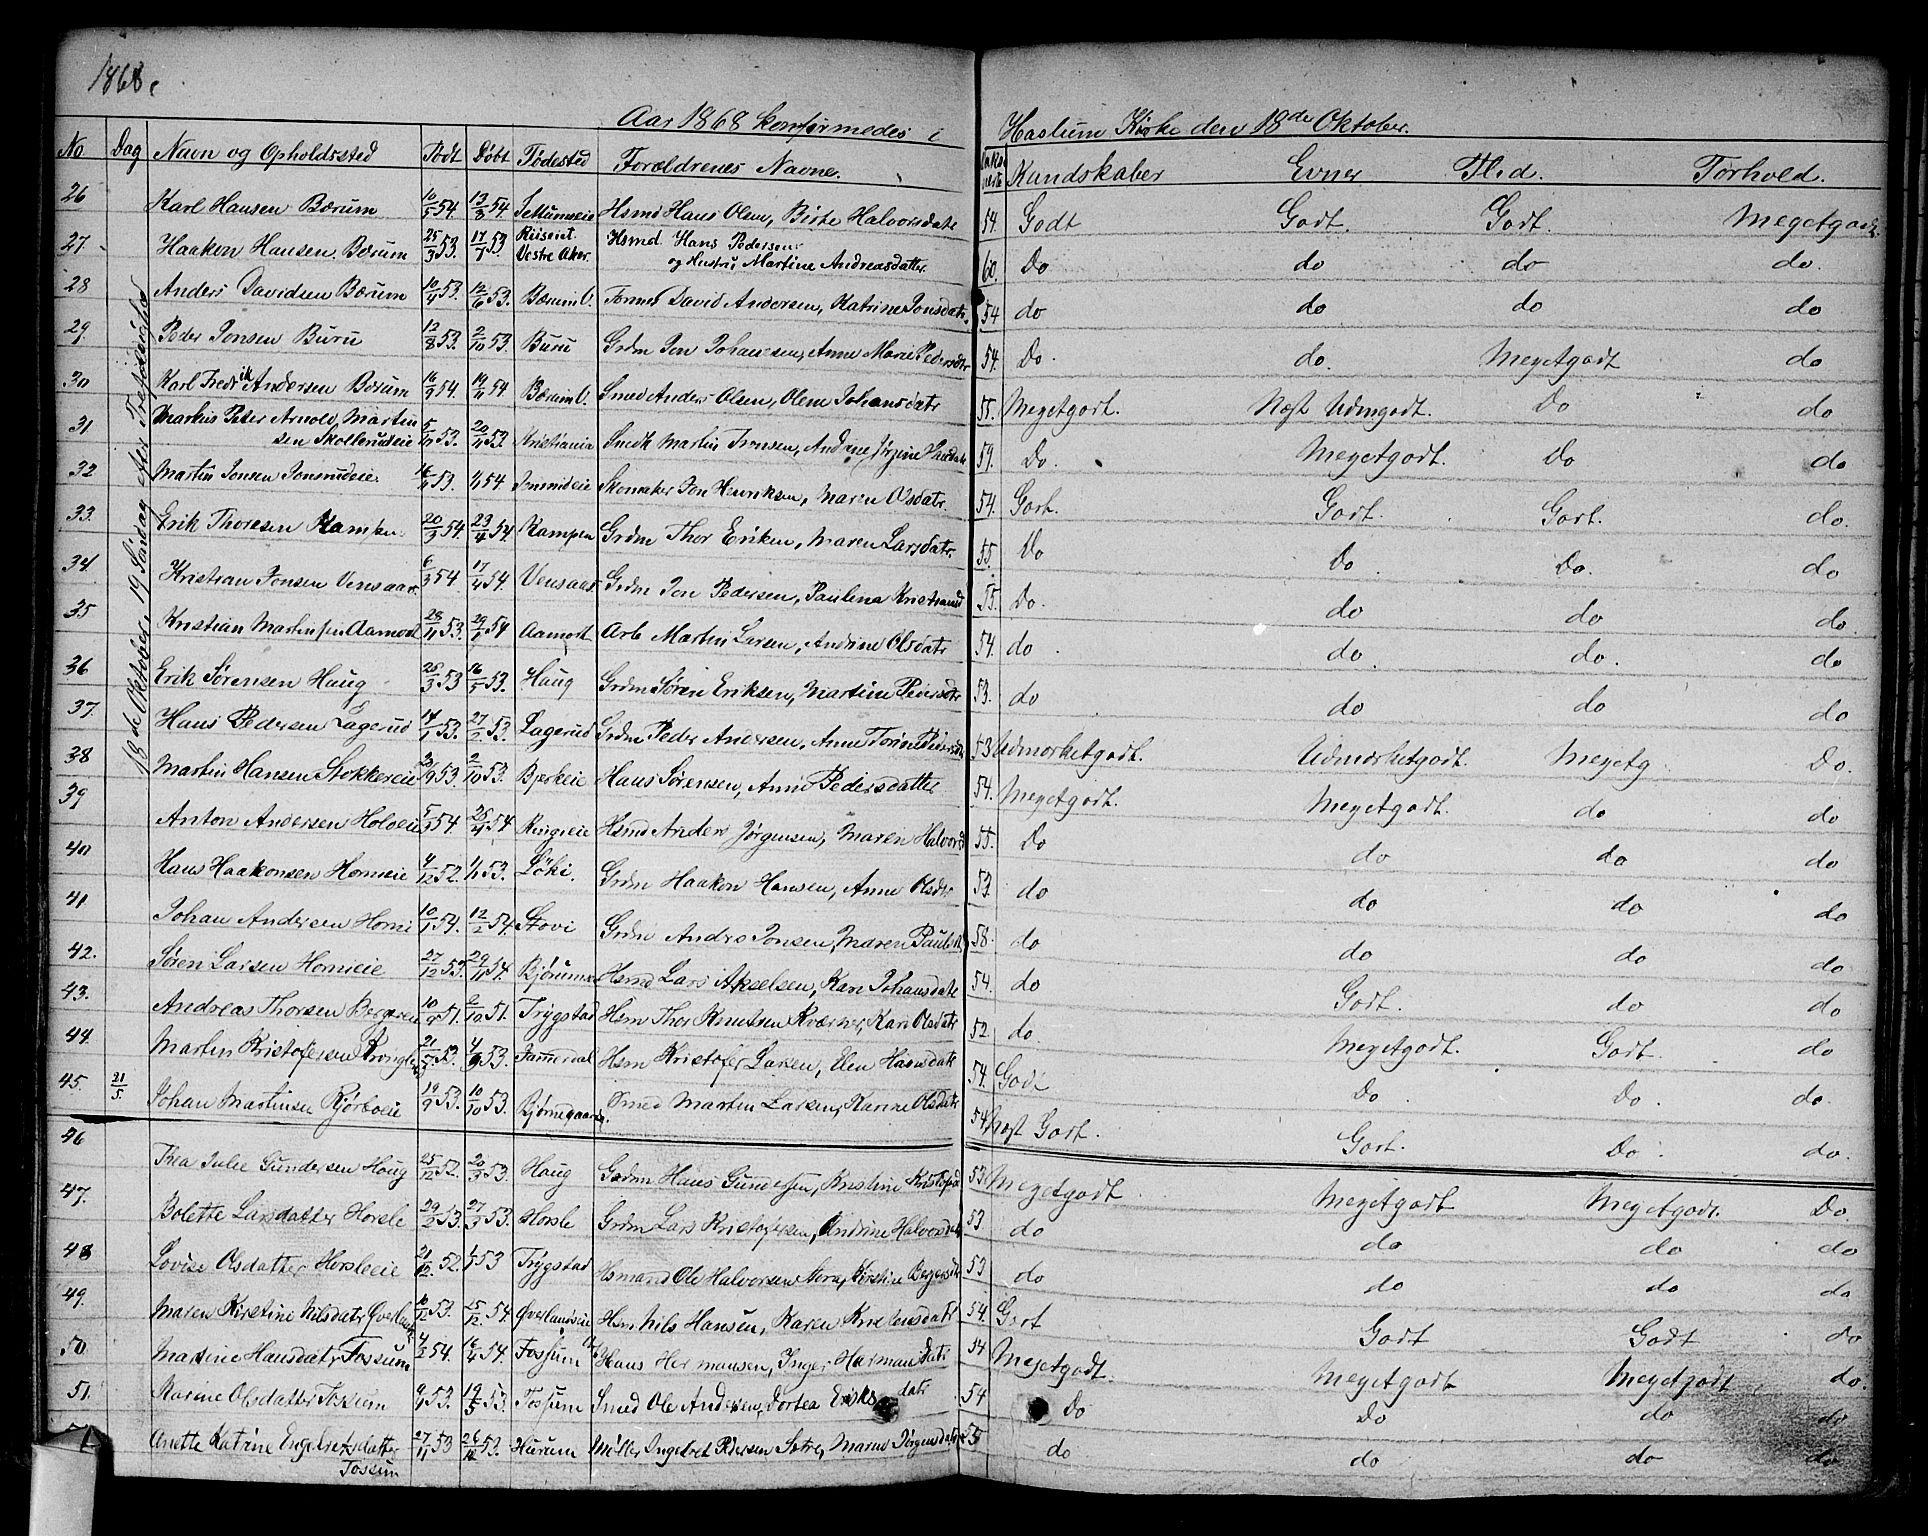 1868.
Aar 1868 konfirmedes i Haslum Kirke den 18de Oktober.
No Dag Navn og Opholdssted Født Døbt Fødested Forældrenes Navne. Kundskaber Evner Flid. Forhold.
18de Oktober, 19 Søndag efter Trefoldighed
26 Karl Hansen Bærum 10/5 54. 13/8 54 Hsmd Hans Olen, Birte Halvorsdate 54. Godt Godt. Godt. Megetgodt.
27 Haaken Hansen Bærum 25/3 53. 17/7 53 Riiseiet Vestre Aker. Hsmd. Hans Pedersen
og Hustru Martine Andreasdatter. 60. Do do do do.
28 Anders Davidsen Bærum 10/4 53. 12/6 53. Bærum V. David Andersen, Katrine Jonsdatr. 54 do do do do
29. Peder Jonsen Buru 12/8 53. 2/10 53. Buru Grdm Jon Johansen, Anne Marie Pedersdtr 54. Do. do. Megetgodt do
30 Karl Fredrik Andersen Bærum 16/9 54. 19/11 54 Bærum V. Smed Anders Olsen, Olene Johansdatr 55. Megetgodt. Næst Udmgodt. Do do
31 Markus Peter Arnold Martin
sen Skollerudeie 5/10 53. 20/11 53. Kristiania Smedk Martin Jensen, Andrine Jørgine Hansdatr 59. Do. Megetgodt. Do do
32 Martin Jonsen Jonsrudeie. 16/11 53. 1/1 54 Jonsrudeie Skomaker Jon Henriksen, Maren Olsdatr. 54. Godt. Godt. Godt. do.
33. Erik Thoresen Kampen. 20/3 54. 23/4 54. Kampen Grdm Thor Eriken, Maren Larsdatr. 55. Do Do. Do. do
34. Kristian Jonsen Vensaas. 6/3 54 17/4 54. Vensaas. Grdm Jon Pedersen, Paulina Kristiansd 55. Do. do do do
35 Kristian Martinsen Aamodt 28/11 53. 29/1 54 Aamodt Arb Martin Larsen, Andrine Olsdatr 54. do do. do. do
36 Erik Sørensen Haug 25/3 53 16/5 53. Haug Grdm Søren Eriksen, Martine Peiersdtr 53. do do do do
37. Hans Pedersen Lagerud 14/1 53. 27/2 53. Lagerud Grdm Peder Andersen, Anne 53 Udmærketgodt. Udmærketgodt. Megetg Do.
38 Martin Hansen Stokkereie 23/9 53. 2/10 53. Bjerkeie Hans Sørensen, Anne Pedersdatter 54. Megetgodt. Megetgodt. do do
39 Anton Andersen Holoeie 5/3 54 25/4 54 Ringieie Hsmd Anders Jørgensen, Maren Halvorsd 55. Do do do do
40 Hans Haakonsen Horneie 4/12 52. 1/1 53. Løki. Grdm Haakon Hansen, Anne Olsdtr 53. do do do do
41. Johan Andersen Horni 10/1 54. 12/2 54. Stovi Grdm Anders Jonsen, Maren Paulsd 58. do do do do
42. Søren Larsen Hornieie 27/12 53. 29/1 54. Bjørumsæ Hsmd Lars Akselsen, Kari Johansdate 54. do Godt. do do
43. Andreas Thorsen Bergereie 10/9 51. 9/10 51. Trygstad Hsm Thor Knutsen Kværner, Kari Olsdatr 52. do. Megetgodt. Godt. do
44. Martin Kristofersen Kringle 21/7 53. 4/9 53. Hsm Kristofer Larsen, Elen Hansdatr 54. Godt Do. Do. do.
45. 21/5. Johan Martinsen Bjørboeie 19/9 53. 10/10 53. Bjørnegaarden. Smed Martin Larsen, Karine Olsdatr 54 Næst Godt. Godt. Do. do
46 Thea Julie Gundersen Haug 25/12 52. 20/3 53. Haug Gaardm Hans Gundersen, Kristine Kristofsd 53. Megetgodt. Megetgodt Megetgodt. Do.
47. Bolette Larsdatter Horsle 29/2 53. 27/3 53. Horsle Grdm Lars Kristofersen, Andrine Halvorsdatr 53 do do do do
48 Lovise Olsdatter Horsleeie 21/12 52. 1/5 53 Trygstad Hsmand Ole Halvorsen Kirstine Bergersdtr 53 do do do do
49. Maren Kirstine Nilsdatr Øverland 10/12 53. 25/12 54. Øverlandseie Hsm Nils Hansen, Karen Knutensdatr 54. Godt Godt Godt do
50 Martine Hansdatr Fossum 4/2 54. 16/4 54. Fossum Hans Hermansen, Inger Harmansdatr 54 Megetgodt. Megetgodt Megetgodt do.
51. Karine Olsdatter Fossum 9/1 53. 19/5 53. Fossum Smed Ole Andersen, Dortea Eriks datr 54 Do Do do do
Anette Katrine Engelretsdatter
Fossum 27/11 53 26/12 53. Hurum Møller Ingebret Pedersen Sætre, Maren Jørgensdatr 55 do do do do